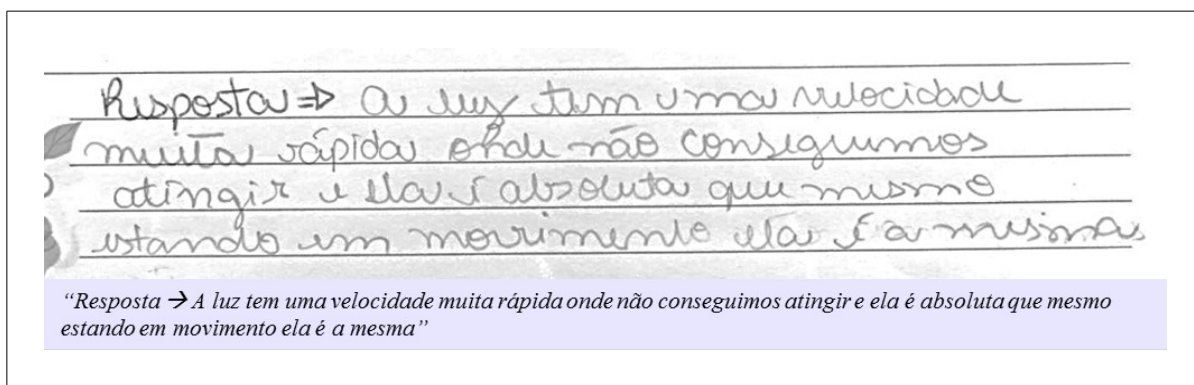 Resposta ⇒ a luz tem uma velocidade
muita rápida onde não conseguimos
atingir e ela é absoluta que mesmo
estando em movimento ela é a mesma
“Resposta → A luz tem uma velocidade muita rápida onde não conseguimos atingir e ela é absoluta que mesmo
estando em movimento ela é a mesma”